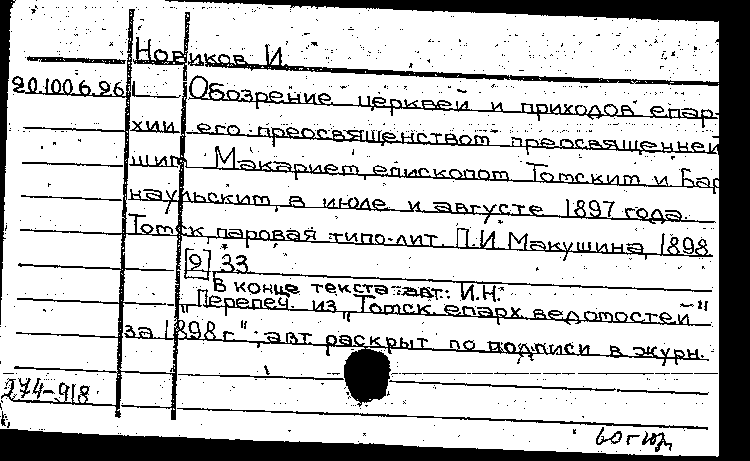 Новиков, И.
20.100.6.26
Обозрение церквей и приходов епар-
хии его преосвященством преосвященней
шим Макарием, епископом Томским и Бар
наульским, в июле и августе 1897 года.
Томск, паровая типо-лит. П.И. Макушина, 1898
[2] 33
В конце текста авт.: И.Н.
"Перепеч. из "Томск. епарх. ведомостей"
за 1898 г."; авт. раскрыт по подписи в журн.
274-918